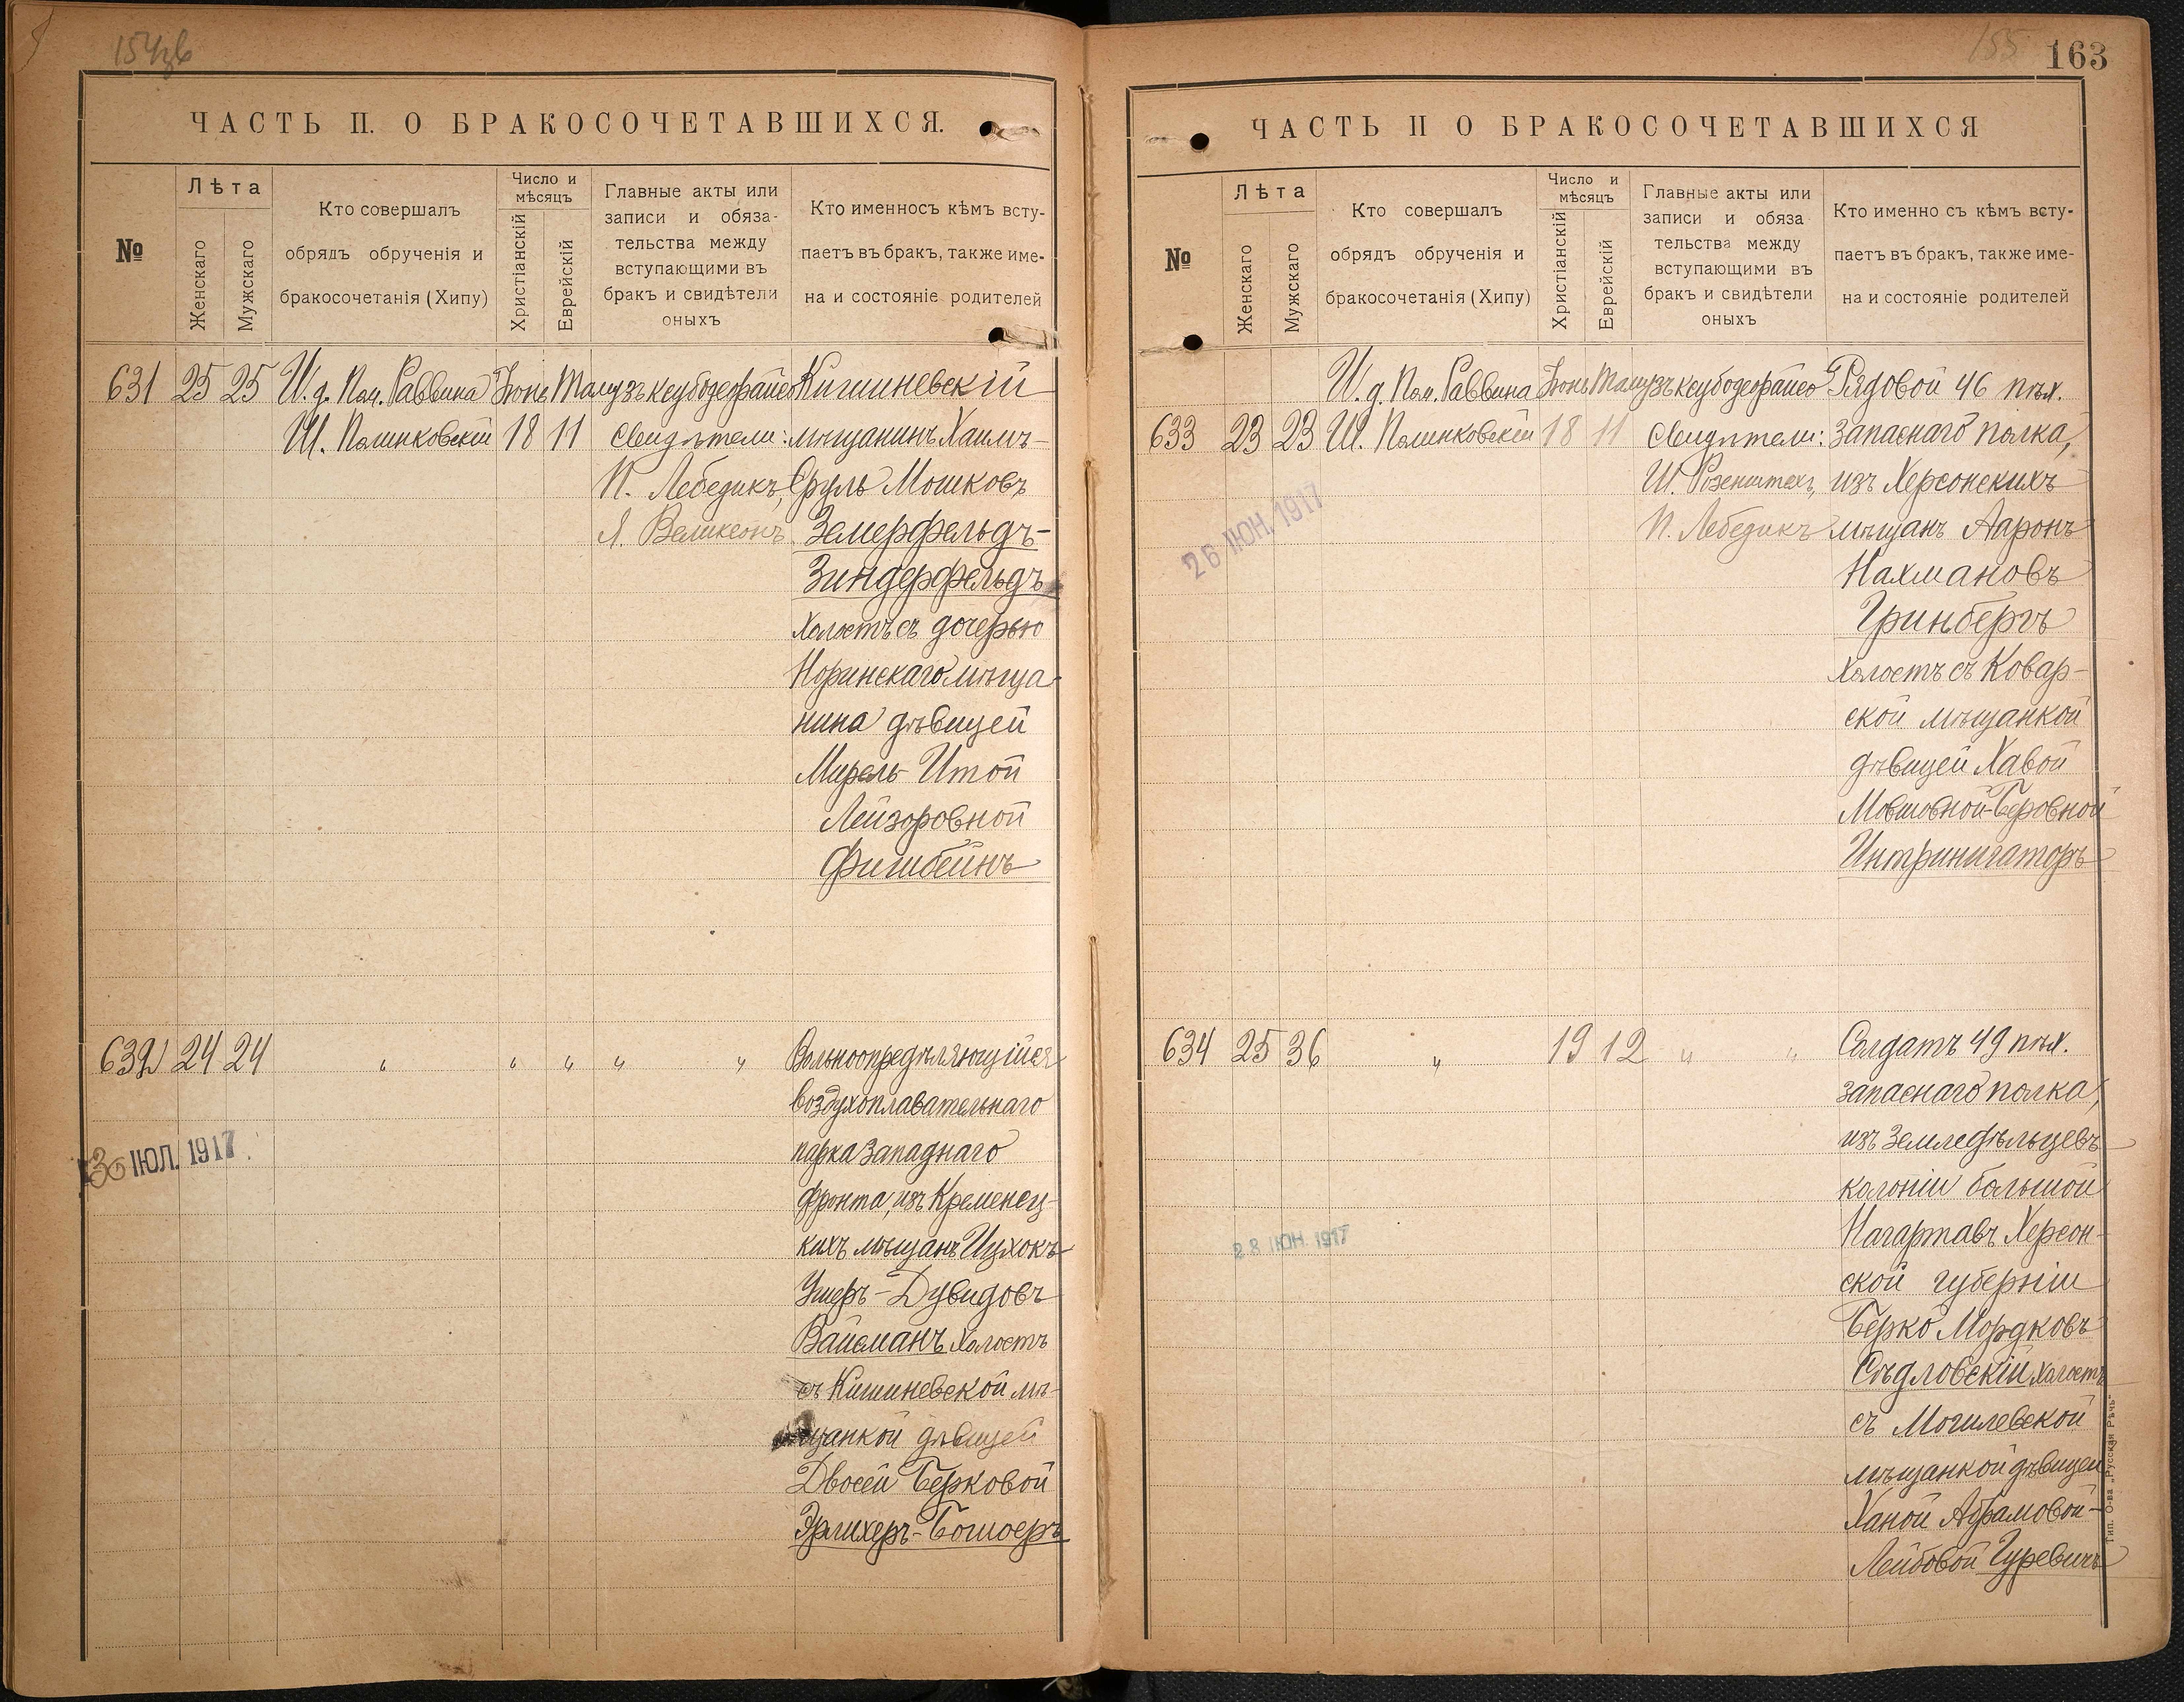 ЧАСТЬ II. О БРАКОСОЧЕТАВШИХСЯ.
№
Лѣта
Женскаго
Мужскаго
Кто совершалъ
обрядъ обрученія и
бракосочетанія (Хипу)
Число и
мѣсяцъ
Христіанскій
Еврейскій
Главные акты или
записи и обяза-
тельства между
вступающими въ
бракъ и свидѣтели
оныхъ
Кто именносъ кѣмъ всту-
паетъ въ бракъ, также име-
на и состояніе родителей
631 25 25 И. д. Пом. Раввина Іюнь Тамузъ ксубодеорайсо Кишиневскій
Ш. Полинковскій 18 11 Свидѣтели: мѣщанинъ Хаимъ-
П. Лебедикъ, Сруль Мошковъ
Я. Великсонъ Земерфельдъ-
Зиндерфельдъ
холостъ съ дочерью
Норинскаго мѣща-
нина дѣвицей
Мирель-Итой
Лейзоровной
Фишбейнъ
632 24 24 " " " " " Вольноопредѣляющійся
воздухоплавательнаго
парка Западнаго
фронта, изъ Кременец-
кихъ мѣщанъ Ицхокъ-
Ушеръ-Дувидовъ
Вайсманъ холостъ
съ Кишиневской мѣ-
щанкой дѣвицей
Двосей Берковой
Эрлихеръ-Бошоеръ
30 ІЮЛ. 1917
155
163
ЧАСТЬ II О БРАКОСОЧЕТАВШИХСЯ
№
Лѣта
Женскаго
Мужскаго
Кто совершалъ
обрядъ обрученія и
бракосочетанія (Хипу)
Число и
мѣсяцъ
Христіанскій
Еврейскій
Главные акты или
записи и обяза
тельства между
вступающими въ
бракъ и свидѣтели
оныхъ
Кто именно съ кѣмъ всту-
паетъ въ бракъ, также име-
на и состояніе родителей
И. д. Пом. Раввина Іюнь Тамузъ ксубодеорайсо Рядовой 46 пѣх.
633 23 23 Ш. Полинковскій 18 11 Свидѣтели: запаснаго полка,
Ш. Розенштехъ, изъ Херсонскихъ
П. Лебедикъ мѣщанъ Ааронъ
Нахмановъ
Гринбергъ
холостъ съ Ковар-
ской мѣщанкой
дѣвицей Хавой
Мовшовной-Беровной
Интринигаторъ
26 ІЮН. 1917
634 25 36 " 19 12 " " Солдатъ 49 пѣх.
запаснаго полка,
изъ земледѣльцевъ
колоніи большой
Нагартавъ Херсон-
ской губерніи
Берко Мордковъ
Сѣдловскій холостъ
съ Могилевской
мѣщанкой дѣвицей
Ханой Абрамовой-
Лейбовой Гуревичъ
28 ІЮН. 1917
Тип. О-ва „Русская Рѣчь"